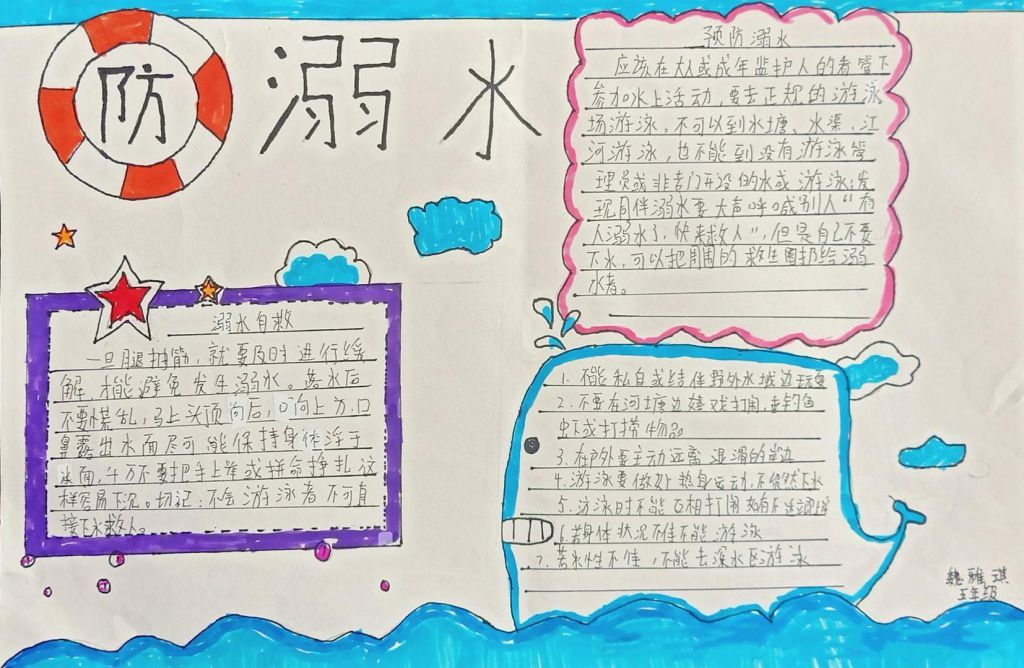 防溺水
预防溺水
应该在大人或成年监护人的看管下
参加水上活动,要去正规的游泳
场游泳,不可以到水塘、水渠、江
河游泳,也不能到没有游泳管
理员或非专门开设的水域游泳;发
现同伴溺水要大声呼喊别人“有
人溺水了,快来救人”,但是自己不要
下水,可以把周围的救生圈扔给溺
水者。
溺水自救
一旦腿抽筋,就要及时进行缓
解,才能避免发生溺水。落水后
不要慌乱,马上头顶向后,口向上方,口
鼻露出水面尽可能保持身体浮于
水面,千万不要把手上举或拼命挣扎这
样容易下沉。切记:不会游泳者不可直
接下水救人。
1. 不能私自或结伴野外水域边玩耍
2. 不要在河塘边嬉戏打闹,垂钓鱼
虾或打捞物品
3. 在户外要主动远离湿滑的岸边
4. 游泳要做好热身运动,不贸然下水
5. 泳泳时不能互相打闹
6. 若身体状况不佳不能游泳
7. 若水性不佳,不能去深水区游泳
魏雅琪
五年级